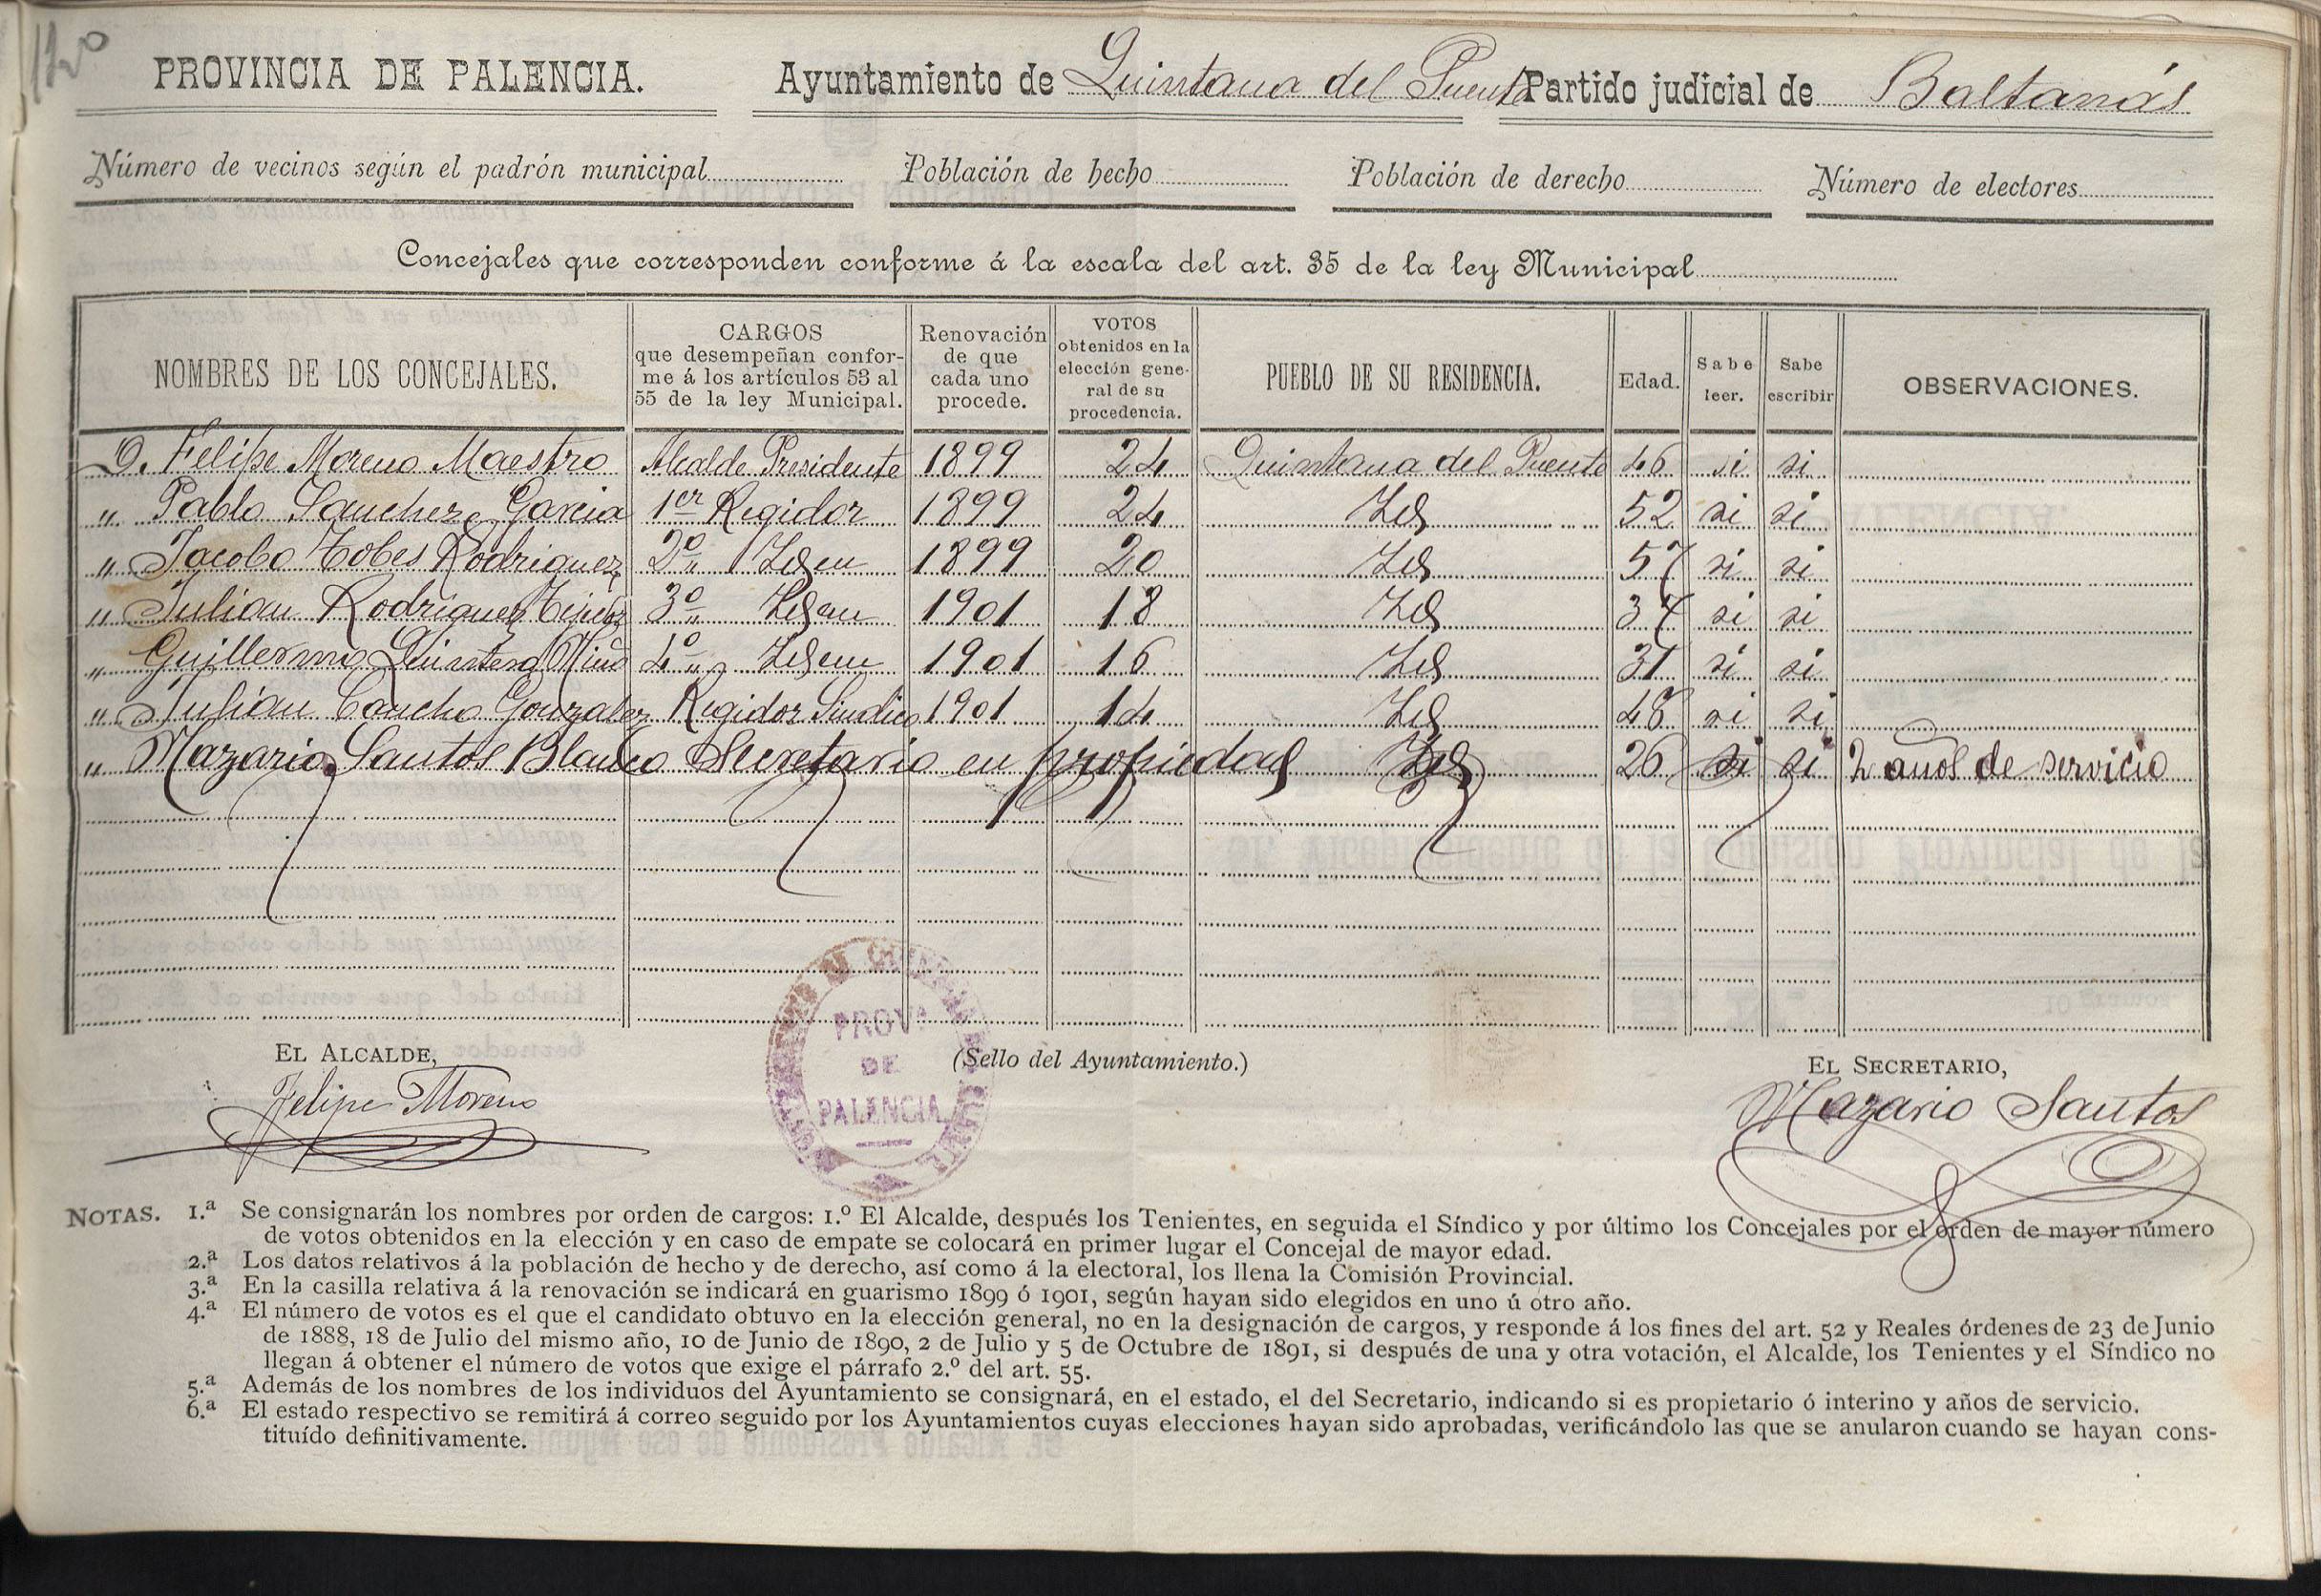 120
PROVINCIA DE PALENCIA. Ayuntamiento de Quintana del Puente Partido judicial de Baltanás
Número de vecinos según el padrón municipal Población de hecho Población de derecho Número de electores
Concejales que corresponden conforme á la escala del art. 35 de la ley Municipal
NOMBRES DE LOS CONCEJALES. CARGOS que desempeñan conforme á los artículos 53 al 55 de la ley Municipal. Renovación de que cada uno procede. VOTOS obtenidos en la elección general de su procedencia. PUEBLO DE SU RESIDENCIA. Edad. Sabe leer. Sabe escribir OBSERVACIONES.
D. Felipe Moreno Maestro Alcalde Presidente 1899 24 Quintana del Puente 46 si si
" Pablo Sanchez Garcia 1er Regidor 1899 24 Id 52 si si
" Jacobo Tobes Rodriguez 2º Idem 1899 20 Id 57 si si
" Julian Rodriguez 3º Idem 1901 18 Id 37 si si
" Guillermo Quintero 4º Idem 1901 16 Id 31 si si
" Julian Cancho Gonzalez Regidor Sindico 1901 14 Id 48 si si
" Nazario Santos Blanco Secretario en propiedad Id 26 si si 2 años de servicio
EL ALCALDE, (Sello del Ayuntamiento.) EL SECRETARIO,
Felipe Moreno Nazario Santos
PROVª
DE
PALENCIA
NOTAS. 1.ª Se consignarán los nombres por orden de cargos: 1.º El Alcalde, después los Tenientes, en seguida el Síndico y por último los Concejales por el orden de mayor número
de votos obtenidos en la elección y en caso de empate se colocará en primer lugar el Concejal de mayor edad.
2.ª Los datos relativos á la población de hecho y de derecho, así como á la electoral, los llena la Comisión Provincial.
3.ª En la casilla relativa á la renovación se indicará en guarismo 1899 ó 1901, según hayan sido elegidos en uno ú otro año.
4.ª El número de votos es el que el candidato obtuvo en la elección general, no en la designación de cargos, y responde á los fines del art. 52 y Reales órdenes de 23 de Junio
de 1888, 18 de Julio del mismo año, 10 de Junio de 1890, 2 de Julio y 5 de Octubre de 1891, si después de una y otra votación, el Alcalde, los Tenientes y el Síndico no
llegan á obtener el número de votos que exige el párrafo 2.º del art. 55.
5.ª Además de los nombres de los individuos del Ayuntamiento se consignará, en el estado, el del Secretario, indicando si es propietario ó interino y años de servicio.
6.ª El estado respectivo se remitirá á correo seguido por los Ayuntamientos cuyas elecciones hayan sido aprobadas, verificándolo las que se anularon cuando se hayan cons-
tituído definitivamente.